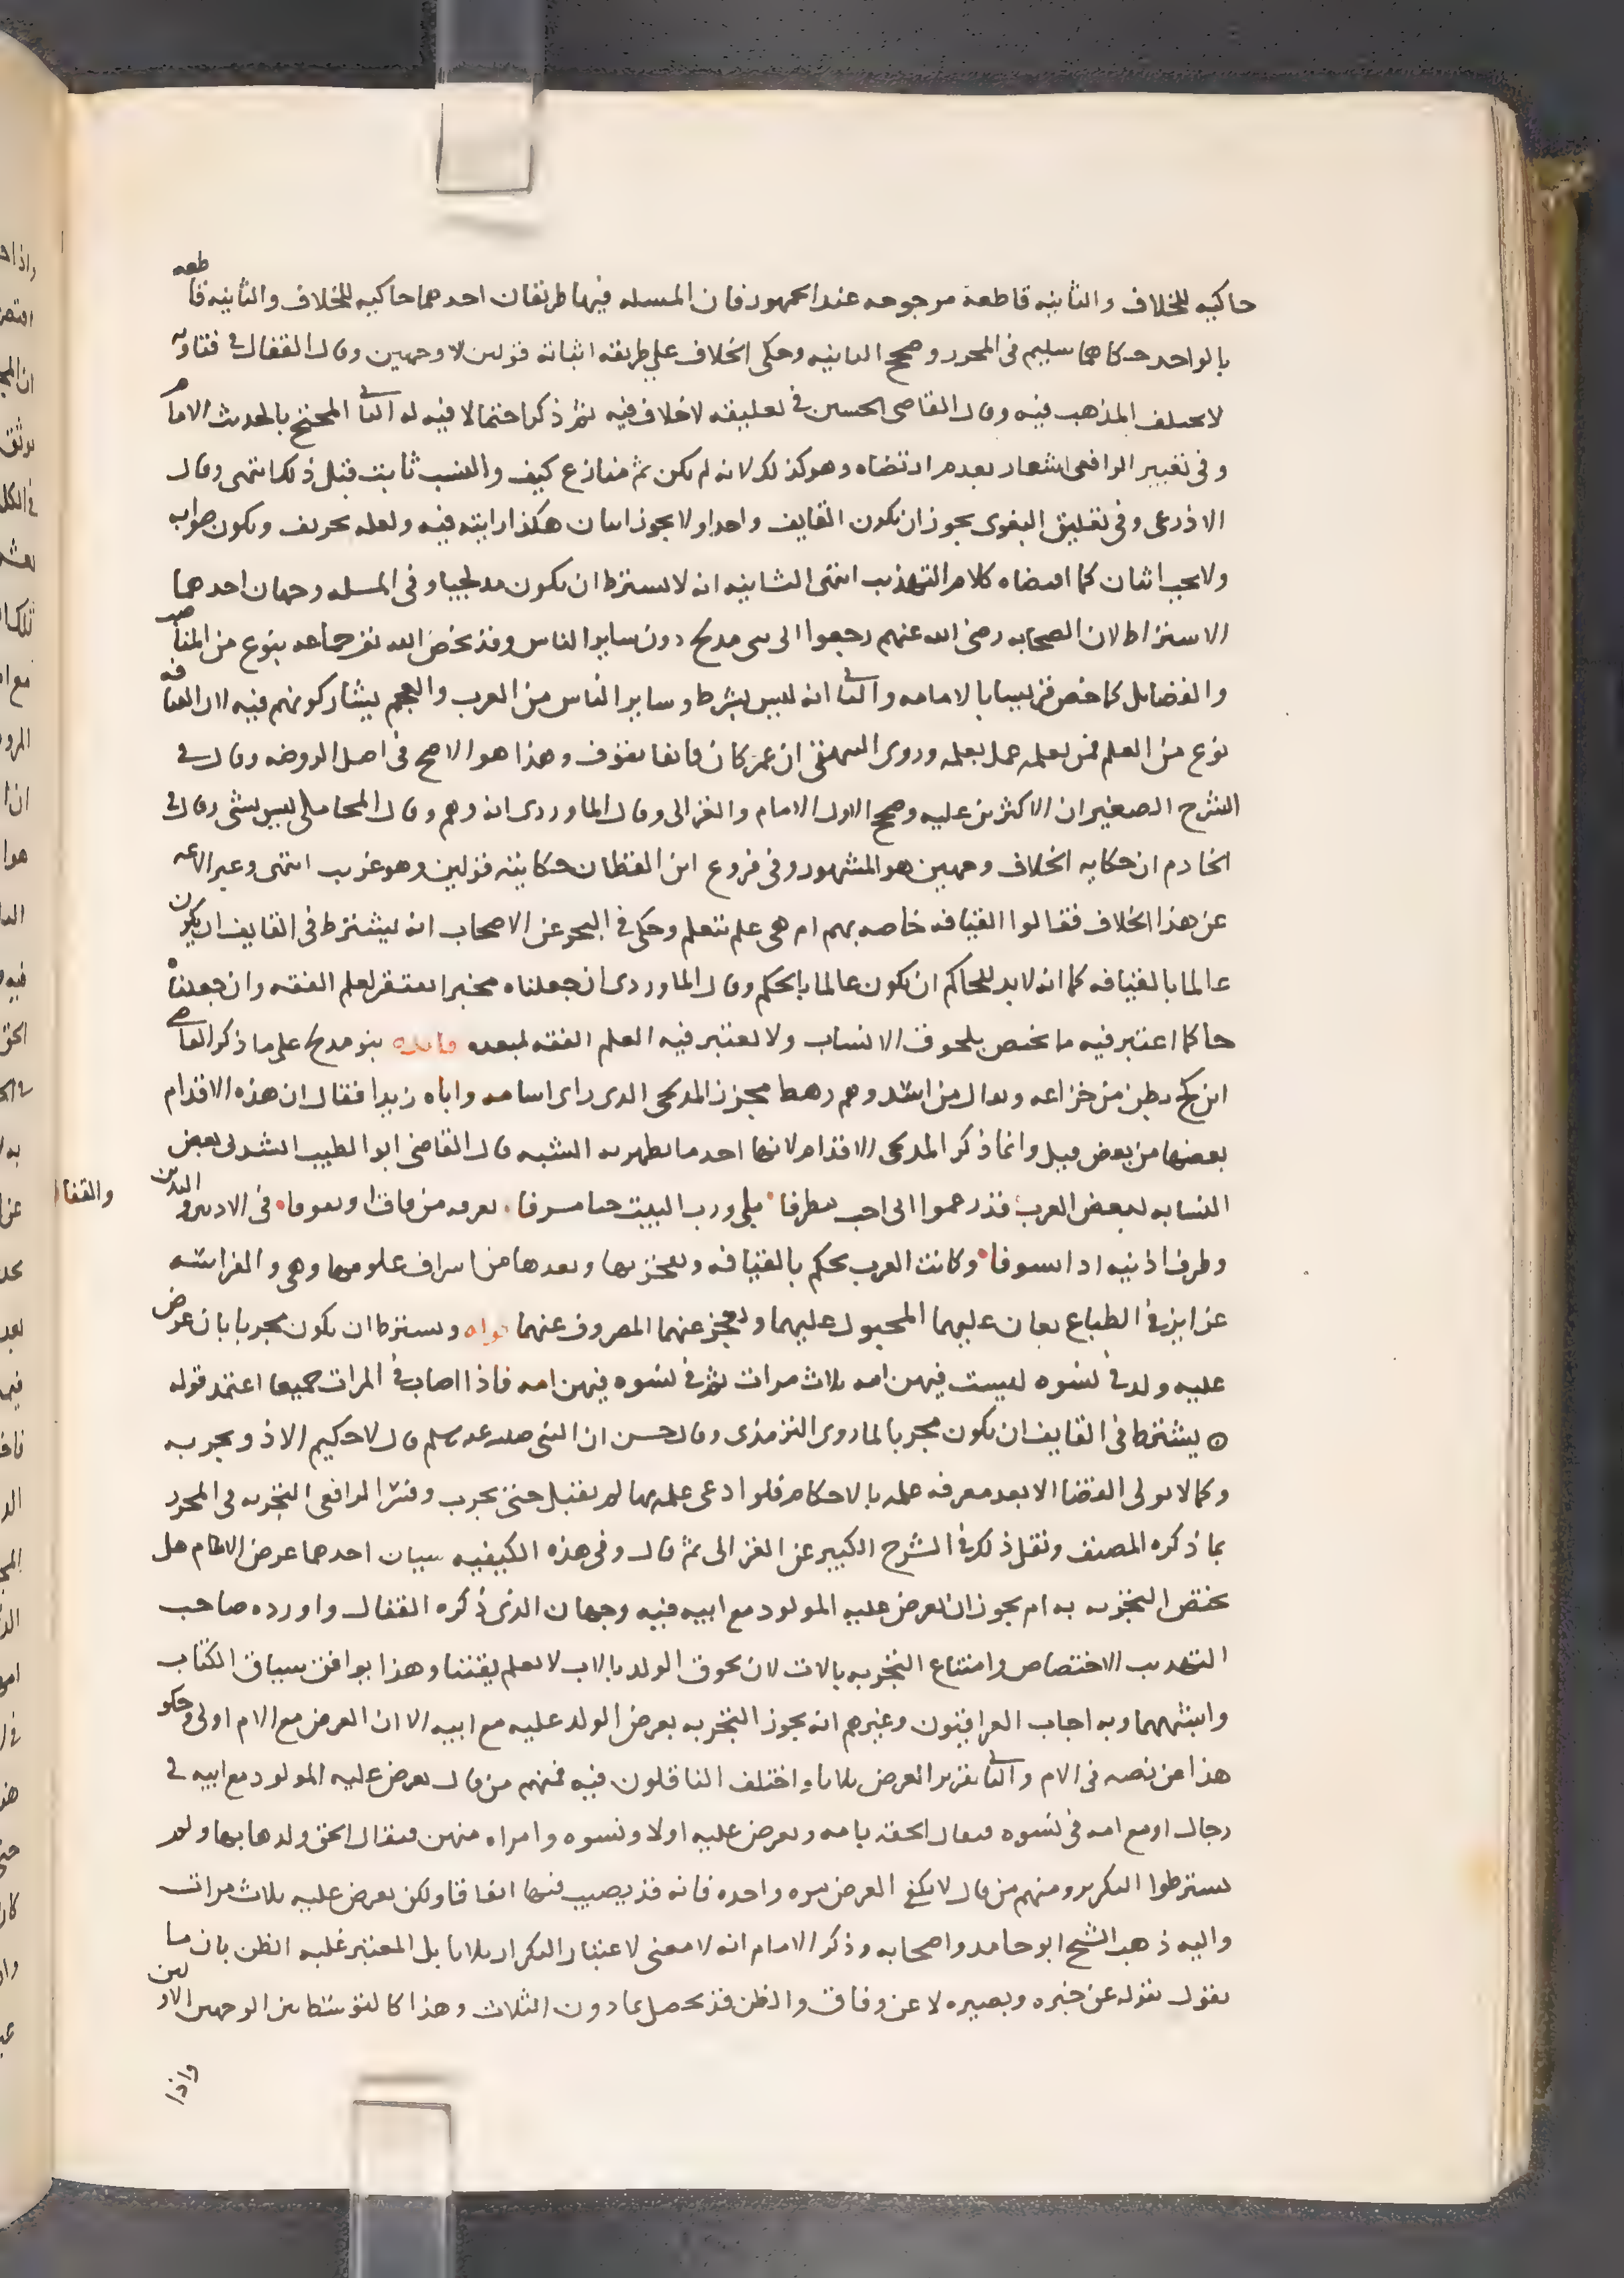 حاكيه للخلاف والثانيه قاطعة مرجوحه عند الجمهور فان المسله فيها طريقان احدهما حاكيه للخلاف والثانيه قاطعه
بالواحد حكاهما سليم فى المجرد وصحح الثانيه وحكى الخلاف على طريقه اثباته قولين لا وجهين وقال القفال في فتاويه
لا يختلف المذهب فيه وقال القاضى الحسين في تعليقه لا خلاف فيه ثم ذكر احتمالا فيه له الثانى المحتج بالحديث الامام
وفى تعبير الرافعى اشعار بعدم ارتضاه وهو كذلك لانه لم يكن ثم منازع كيف والنسب ثابت قبل ذلك انتهى وقال
الاذرعى وفى تعليق البغوى يجوز ان يكون القايف واحدا ولا يجوز اثنان هكذا رايته فيه ولعله تحريف ويكون صوابه
ولا يجب اثنان كما اقتضاه كلام التهذيب انتهى الثانيه انه لا يشترط ان يكون مدلجيا وفى المسله وجهان احدهما
الاشتراط لان الصحابه رضى الله عنهم رجعوا الى بنى مدلج دون ساير الناس وقد يخص الله تعر جماعه بنوع من المناصب
والفضايل كما خص قريشا بالامامه والثانى انه ليس بشرط وساير الناس من العرب والعجم يشاركونهم فيه لان القيافه
نوع من العلم فمن تعلمه عمل بعلمه وروى البيهقى ان عمر كان قايفا يقوف وهذا هو الاصح فى اصل الروضه وقال في
الشرح الصغير ان الاكثرين عليه وصحح الاول الامام والغزالى وقال الماوردى انه وهم وقال المحاملى ليس بشى وقال في
الخادم ان حكايه الخلاف وجهين هو المشهور وفى فروع ابن القطان حكايته قولين وهو غريب انتهى وعبر الائمه
عن هذا الخلاف فقالوا القيافه خاصه بهم ام هى علم تتعلم وحكى في البحر عن الاصحاب انه يشترط فى القايف ان يكون
عالما بالقيافه كما انه لا بد للحاكم ان يكون عالما بالحكم وقال الماوردى ان جعلناه مخبرا لم يفتقر لعلم الفقه وان جعلناه
حاكما اعتبر فيه ما يختص بلحوق الانساب ولا يعتبر فيه العلم الفقه لبعده فائده بنو مدلج على ما ذكر القاضى
ابن كج بطن من خزاعه ويقال من اسد وهم رهط مجزز المدلجى الذى راى اسامه واباه زيدا فقال ان هذه الاقدام
بعضها من بعض قيل وانما ذكر المدلجى الاقدام لانها احد ما يظهر به الشبه قال القاضى ابو الطيب انشدنى بعض
النسابه لبعض العرب قد زعموا الى احب مطرفا يلى ورب البيت حبا مسرفا يعرفه من قاف او تعوفا فى الاذنين واليدين
وطرف اذنيه اذا تشوفا وكانت العرب تحكم بالقيافه وتفتخر بها وتعدها من اشراف علومها وهى والفراسه
غرايز في الطباع يعان عليهما المجبول عليهما ويعجز عنهما المصروف عنهما قوله ويشترط ان يكون مجربا بان عرض
عليه ولد في نسوه ليست فيهن امه ثلاث مرات ثم في نسوه فيهن امه فاذا اصاب في المرات جميعا اعتمد قوله
ه يشترط فى القايف ان يكون مجربا لما روى الترمذى وقال حسن ان النبى صلى الله عليه وسلم قال لا حكيم الا ذو تجربه
وكما لا يولى القضا الا بعد معرفه علمه بالاحكام فلو ادعى علمه بها لم يقبل حتى يجرب وفسر الرافعى التجربه فى المحرر
بما ذكره المصنف ونقل ذلك في الشرح الكبير عن الغزالى ثم قال وفى هذه الكيفيه سيان احدهما عرض الامام هل
تختص التجربه به ام يجوز ان يعرض عليه المولود مع ابيه فيه وجهان الذى ذكره القفال واورده صاحب
التهذيب الاختصاص وامتناع التجربه بالاب لان لحوق الولد بالاب لا يعلم يقينا وهذا يوافق سياق الكتاب
واشبههما وبه اجاب العراقيون وغيرهم انه يجوز التجربه بعرض الولد عليه مع ابيه الا ان العرض مع الام اولى وحكو
هذا عن نصه فى الام والثانى تقرير العرض ثلاثا واختلف الناقلون فيه فمنهم من قال يعرض عليه المولود مع ابيه في
رجال او مع امه فى نسوه فيقال الحقه بامه ويعرض عليه اولا ونسوه وامراه منهن فيقال الحق ولدها بها ولم
يشترطوا التكرير ومنهم من قال لا يكفى العرض مره واحده فانه قد يصيب فيها اتفاقا ولكن يعرض عليه ثلاث مرات
واليه ذهب الشيخ ابو حامد واصحابه وذكر الامام انه لا معنى لاعتبار التكرار ثلاثا بل المعتبر غلبه الظن بان ما
يقول يقوله عن خبره وبصيره لا عن وفاق والظن قد يحصل بما دون الثلاث وهذا كالتوسط بين الوجهين الاولين
واذا
والقفا